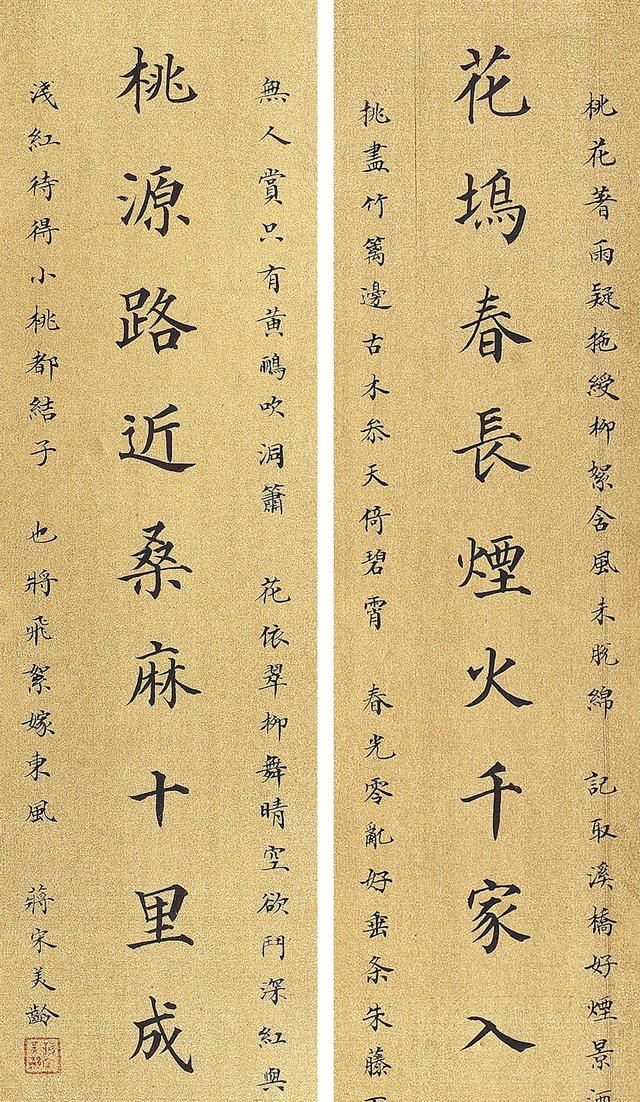 桃花著雨疑拖綬柳絮含風未脫綿 記取溪橋好煙景
花塢春長煙火千家入
挑盡竹籬邊古木叅天倚碧霄 春光零亂好垂条朱藤
無人賞只有黃鸝吹洞簫 花依翠柳舞晴空欲鬥深紅與
桃源路近桑麻十里成
淺紅待得小桃都結子 也將飛絮嫁東風 蔣宋美齡